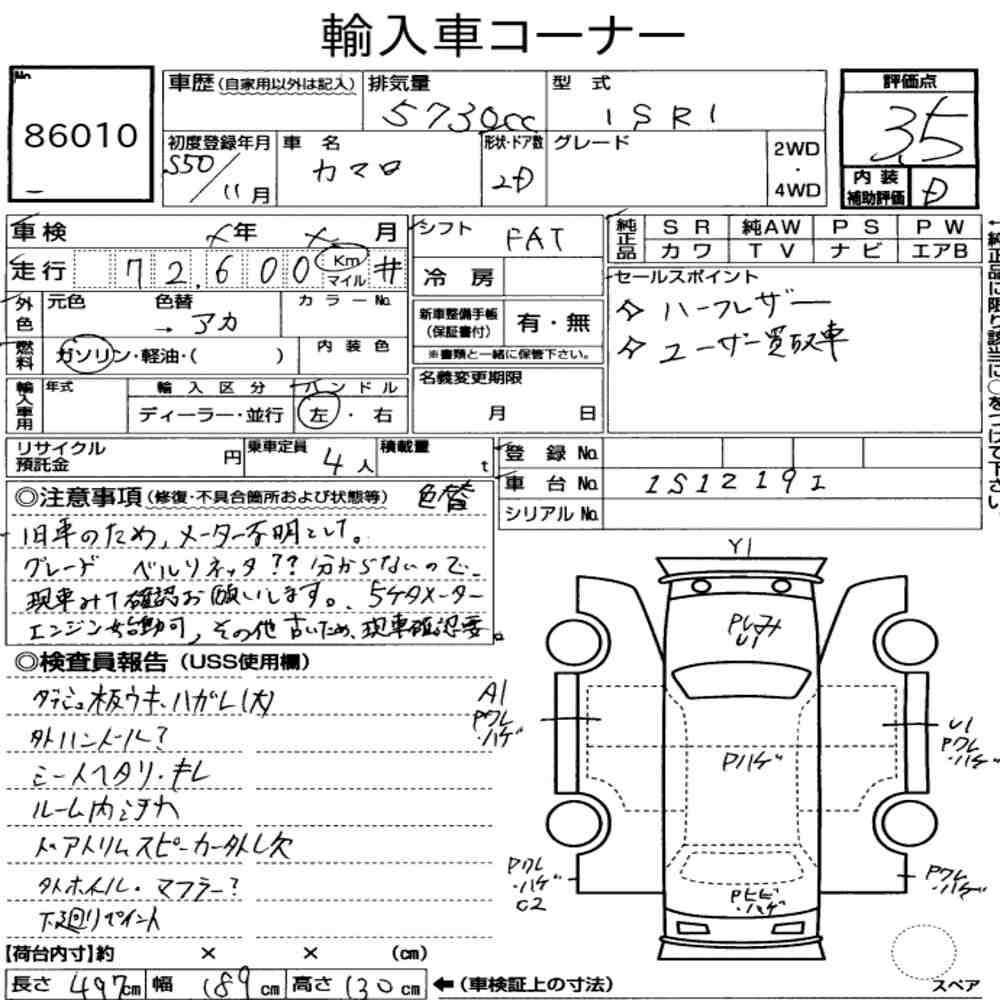 輸入車コーナー
No.
86010
車歴(自家用以外は記入)
排気量
5730cc
型 式
1SR1
評価点
3.5
初度登録年月
S50/11月
車 名
カマロ
形状・ドア数
2D
グレード
2WD
・
4WD
内 装
補助評価
D
車検 × 年 × 月
走行 72,600 Km マイル #
外色
元色
色替
→ アカ
カラーNo.
燃料
ガソリン・軽油・( )
内 装 色
輸入車用
年式
輸 入 区 分
ディーラー・並行
ハ ン ド ル
左 ・ 右
シフト
FAT
冷 房
新車整備手帳
(保証書付)
有・無
※書類と一緒に保管下さい。
名義変更期限
月 日
純正品
S R
純AW
P S
P W
カ ワ
T V
ナ ビ
エアB
セールスポイント
☆ ハーフレザー
☆ ユーザー買取車
←純正品に限り該当に○をつけて下さい。
リサイクル
預託金
円
乗車定員
4人
積載量
t
登 録 No.
車 台 No.
1S12191
シリアル No.
◎注意事項(修復・不具合箇所および状態等) 色替
旧車のため,メーター不明として。
グレード ベルリネッタ??分からないので、
現車みて確認お願いします。、5ケタメーター
エンジン始動可,その他古いため,現車確認要。
◎検査員報告(USS使用欄)
ダッシュ板ウキ、ハガレ(大)
外ハンドル?
シートヘタリ・キレ
ルーム内ヨゴレ
ドアトリムスピーカー外し欠
外ホイル・マフラー?
下廻りペイント
Y1
Pレヌミ
U1
A1
Pワレ
・ハゲ
Pハゲ
U1
Pワレ
・ハゲ
Pワレ
・ハゲ
C2
Pヒビ
・ハゲ
Pワレ
・ハゲ
スペア
【荷台内寸】約 × × (cm)
長さ 497cm 幅 189cm 高さ 130cm ←(車検証上の寸法)